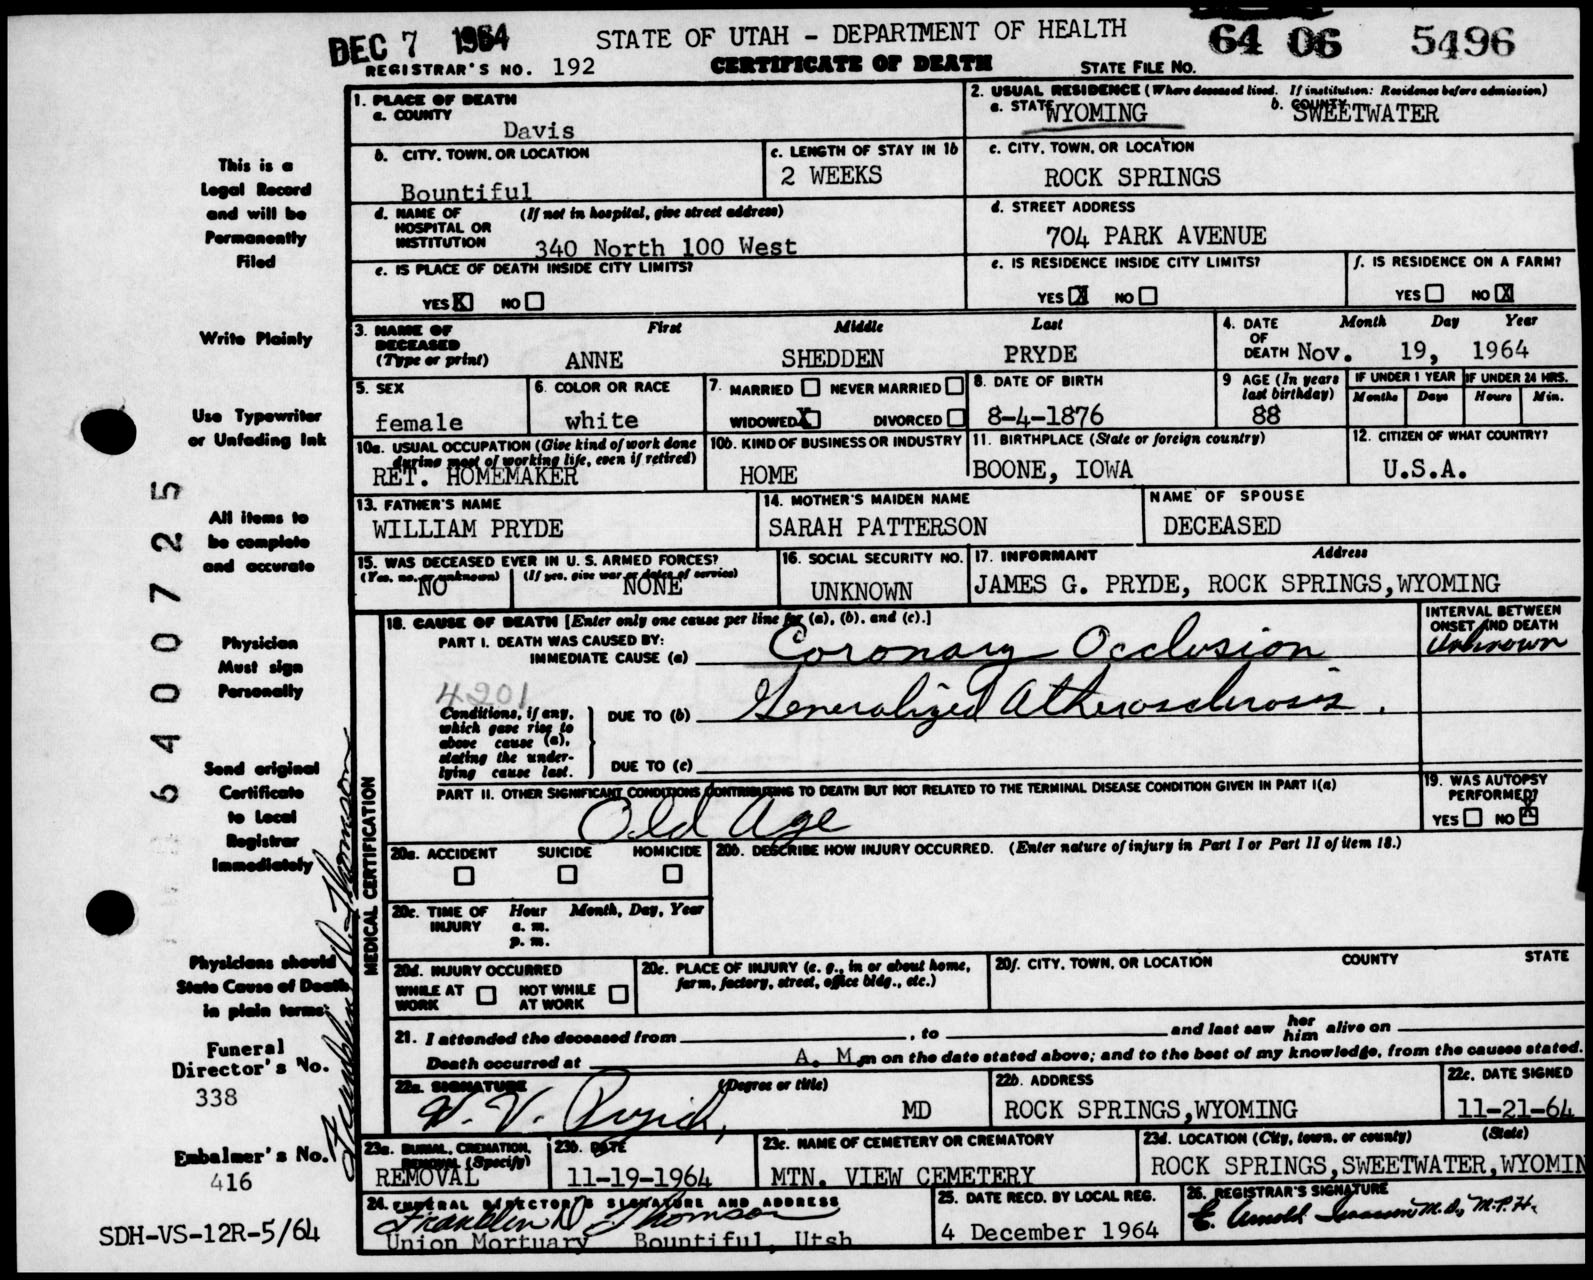 DEC 7 1964
STATE OF UTAH - DEPARTMENT OF HEALTH
64 06 5496
REGISTRAR'S NO. 192
CERTIFICATE OF DEATH
STATE FILE NO.
1. PLACE OF DEATH
a. COUNTY
Davis
2. USUAL RESIDENCE (Where deceased lived. If institution: Residence before admission)
a. STATE WYOMING
b. COUNTY SWEETWATER
b. CITY, TOWN, OR LOCATION
Bountiful
c. LENGTH OF STAY IN 1b
2 WEEKS
c. CITY, TOWN, OR LOCATION
ROCK SPRINGS
d. NAME OF HOSPITAL OR INSTITUTION
(If not in hospital, give street address)
340 North 100 West
d. STREET ADDRESS
704 PARK AVENUE
e. IS PLACE OF DEATH INSIDE CITY LIMITS?
YES X NO
e. IS RESIDENCE INSIDE CITY LIMITS?
YES X NO
f. IS RESIDENCE ON A FARM?
YES NO X
3. NAME OF DECEASED (Type or print)
First Middle Last
ANNE SHEDDEN PRYDE
4. DATE OF DEATH
Month Day Year
Nov. 19, 1964
5. SEX
female
6. COLOR OR RACE
white
7. MARRIED NEVER MARRIED
WIDOWED X DIVORCED
8. DATE OF BIRTH
8-4-1876
9 AGE (In years last birthday)
88
IF UNDER 1 YEAR
Months Days
IF UNDER 24 HRS.
Hours Min.
10a. USUAL OCCUPATION (Give kind of work done during most of working life, even if retired)
RET. HOMEMAKER
10b. KIND OF BUSINESS OR INDUSTRY
HOME
11. BIRTHPLACE (State or foreign country)
BOONE, IOWA
12. CITIZEN OF WHAT COUNTRY?
U.S.A.
13. FATHER'S NAME
WILLIAM PRYDE
14. MOTHER'S MAIDEN NAME
SARAH PATTERSON
NAME OF SPOUSE
DECEASED
15. WAS DECEASED EVER IN U. S. ARMED FORCES?
(Yes, no, or unknown) (If yes, give war or dates of service)
NO NONE
16. SOCIAL SECURITY NO.
UNKNOWN
17. INFORMANT Address
JAMES G. PRYDE, ROCK SPRINGS,WYOMING
18. CAUSE OF DEATH [Enter only one cause per line for (a), (b), and (c).]
INTERVAL BETWEEN ONSET AND DEATH
PART I. DEATH WAS CAUSED BY:
IMMEDIATE CAUSE (a) Coronary Occlusion Unknown
4201
Conditions, if any, which gave rise to above cause (a), stating the underlying cause last.
DUE TO (b) Generalized Atherosclerosis.
DUE TO (c)
PART II. OTHER SIGNIFICANT CONDITIONS CONTRIBUTING TO DEATH BUT NOT RELATED TO THE TERMINAL DISEASE CONDITION GIVEN IN PART I(a)
Old Age
19. WAS AUTOPSY PERFORMED?
YES NO X
20a. ACCIDENT SUICIDE HOMICIDE
20b. DESCRIBE HOW INJURY OCCURRED. (Enter nature of injury in Part I or Part II of item 18.)
20c. TIME OF INJURY
Hour Month, Day, Year
a. m.
p. m.
20d. INJURY OCCURRED
WHILE AT WORK NOT WHILE AT WORK
20e. PLACE OF INJURY (e. g., in or about home, farm, factory, street, office bldg., etc.)
20f. CITY, TOWN, OR LOCATION COUNTY STATE
21. I attended the deceased from , to and last saw her him alive on
Death occurred at A. M. m on the date stated above; and to the best of my knowledge, from the causes stated.
22a. SIGNATURE (Degree or title)
MD
22b. ADDRESS
ROCK SPRINGS,WYOMING
22c. DATE SIGNED
11-21-64
23a. BURIAL, CREMATION, REMOVAL (Specify)
REMOVAL
23b. DATE
11-19-1964
23c. NAME OF CEMETERY OR CREMATORY
MTN. VIEW CEMETERY
23d. LOCATION (City, town, or county) (State)
ROCK SPRINGS,SWEETWATER,WYOMIN
24. FUNERAL DIRECTOR'S SIGNATURE AND ADDRESS
Franklin D. Thomson
Union Mortuary Bountiful, Utah
25. DATE RECD. BY LOCAL REG.
4 December 1964
26. REGISTRAR'S SIGNATURE
E. Arnold Isaacson M.D., M.P.H.
MEDICAL CERTIFICATION
This is a
Legal Record
and will be
Permanently
Filed
Write Plainly
Use Typewriter
or Unfading Ink
All items to
be complete
and accurate
Physician
Must sign
Personally
Send original
Certificate
to Local
Registrar
Immediately
Physicians should
State Cause of Death
in plain terms.
Funeral
Director's No.
338
Embalmer's No.
416
SDH-VS-12R-5/64
6400725
Thomson